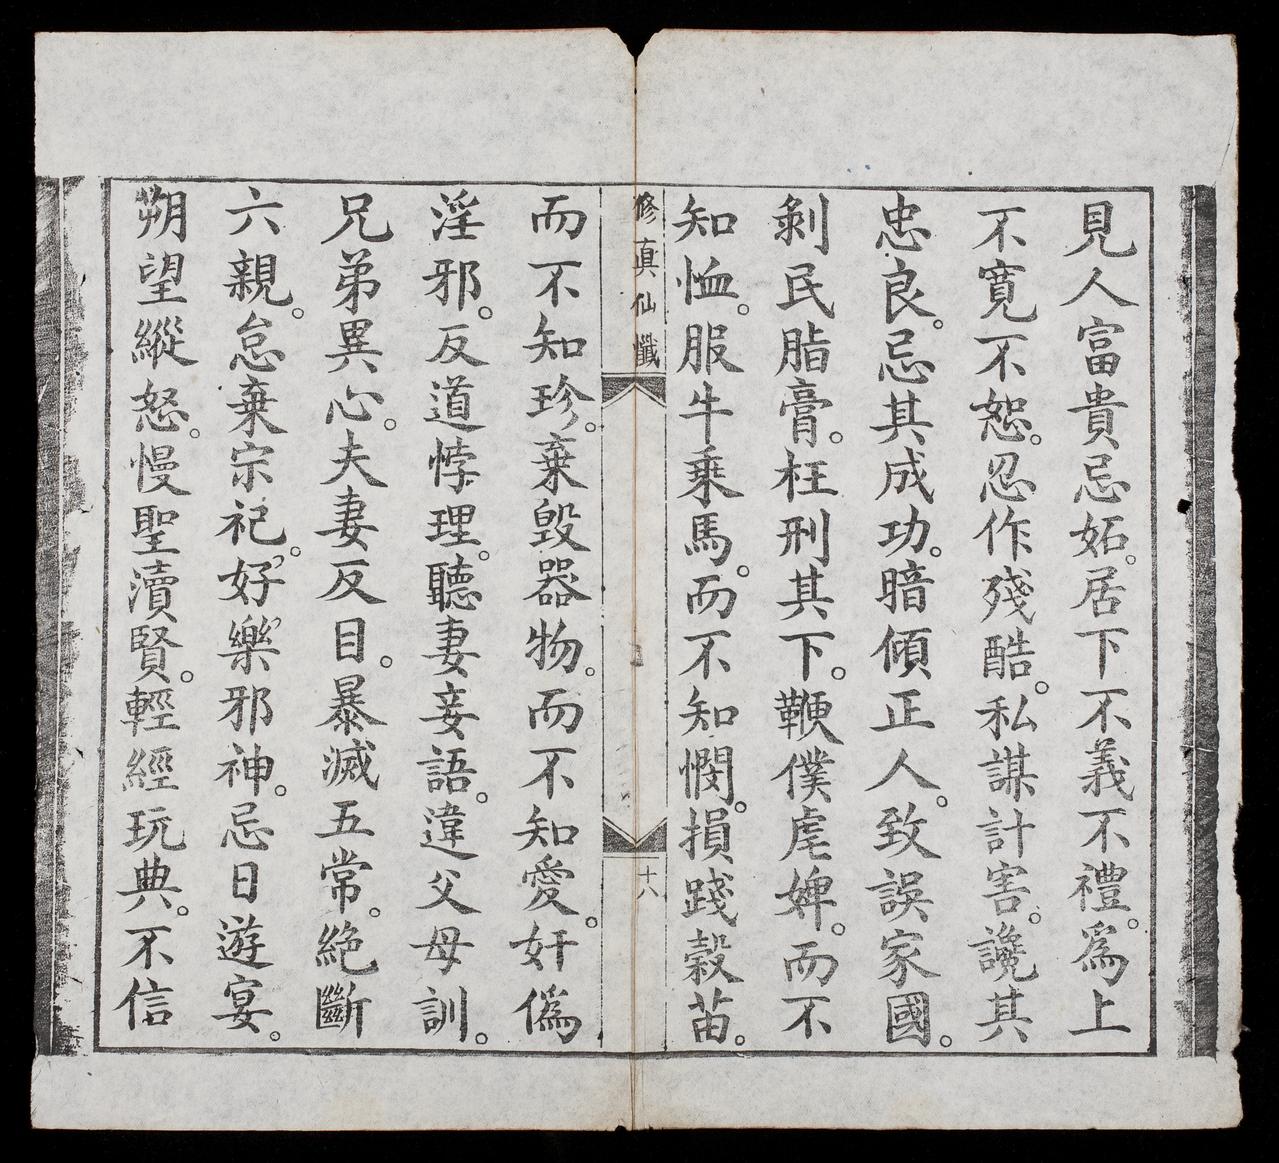 見人富貴忌妬。居下不義不禮。爲上
不寬不恕。忍作殘酷。私謀計害。讒其
忠良。忌其成功。暗傾正人。致誤家國。
剝民脂膏。枉刑其下。鞭僕虐婢。而不
知恤。服牛乘馬。而不知憫。損踐穀苗。
修真仙懺
十八
而不知珍。棄毀器物。而不知愛。奸僞
淫邪。反道悖理。聽妻妾語。違父母訓。
兄弟異心。夫妻反目。暴滅五常。絕斷
六親。怠棄宗祀。好樂邪神。忌日遊宴。
朔望縱怒。慢聖瀆賢。輕經玩典。不信